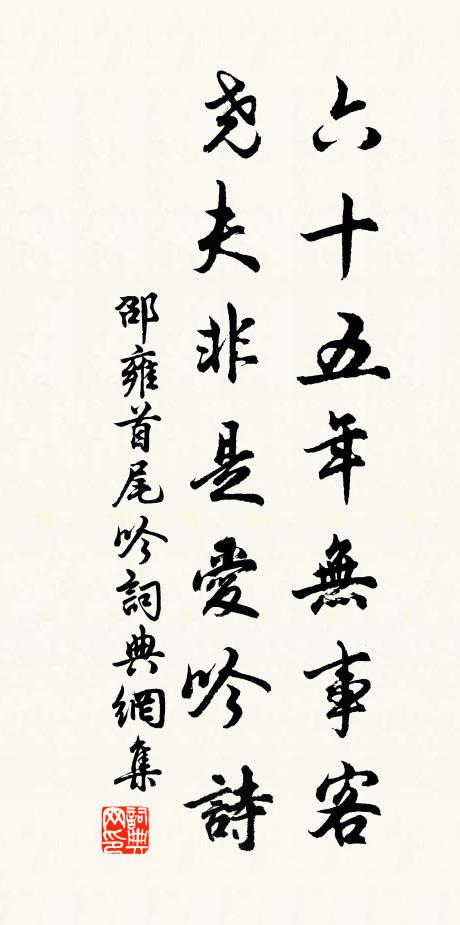 六十五年無事客
尧夫非是愛吟詩
邵雍首尾吟詞典網集
詞典網印